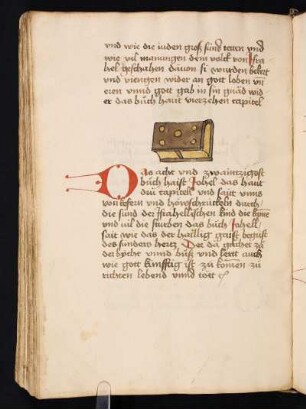 vnd wie die iuden groß sund teten vnd
wie vil manungen dem volck von Jsra
hel geschahen dauon si wurden bekert
vnd viengen wider an gott loben vn
eren vnnd gott gab in sin gnad vnd
er das büch haut vierzehen capitel
Das acht vnd zwaintzigost
büch haist Johel das haut
driü capitel vnd sait vnns
von kefern vnd höwschreckeln durch
die sünd der Jsrahellischen kind die
vnd vil die sturben das büch Johell
sait wie das der hailig gaist begiist
des sunders hertz Der da zü
der bycht vnnd büß vnd seret auch
wie gott künfftig ist zü komen zü
richten lebend vnnd tott